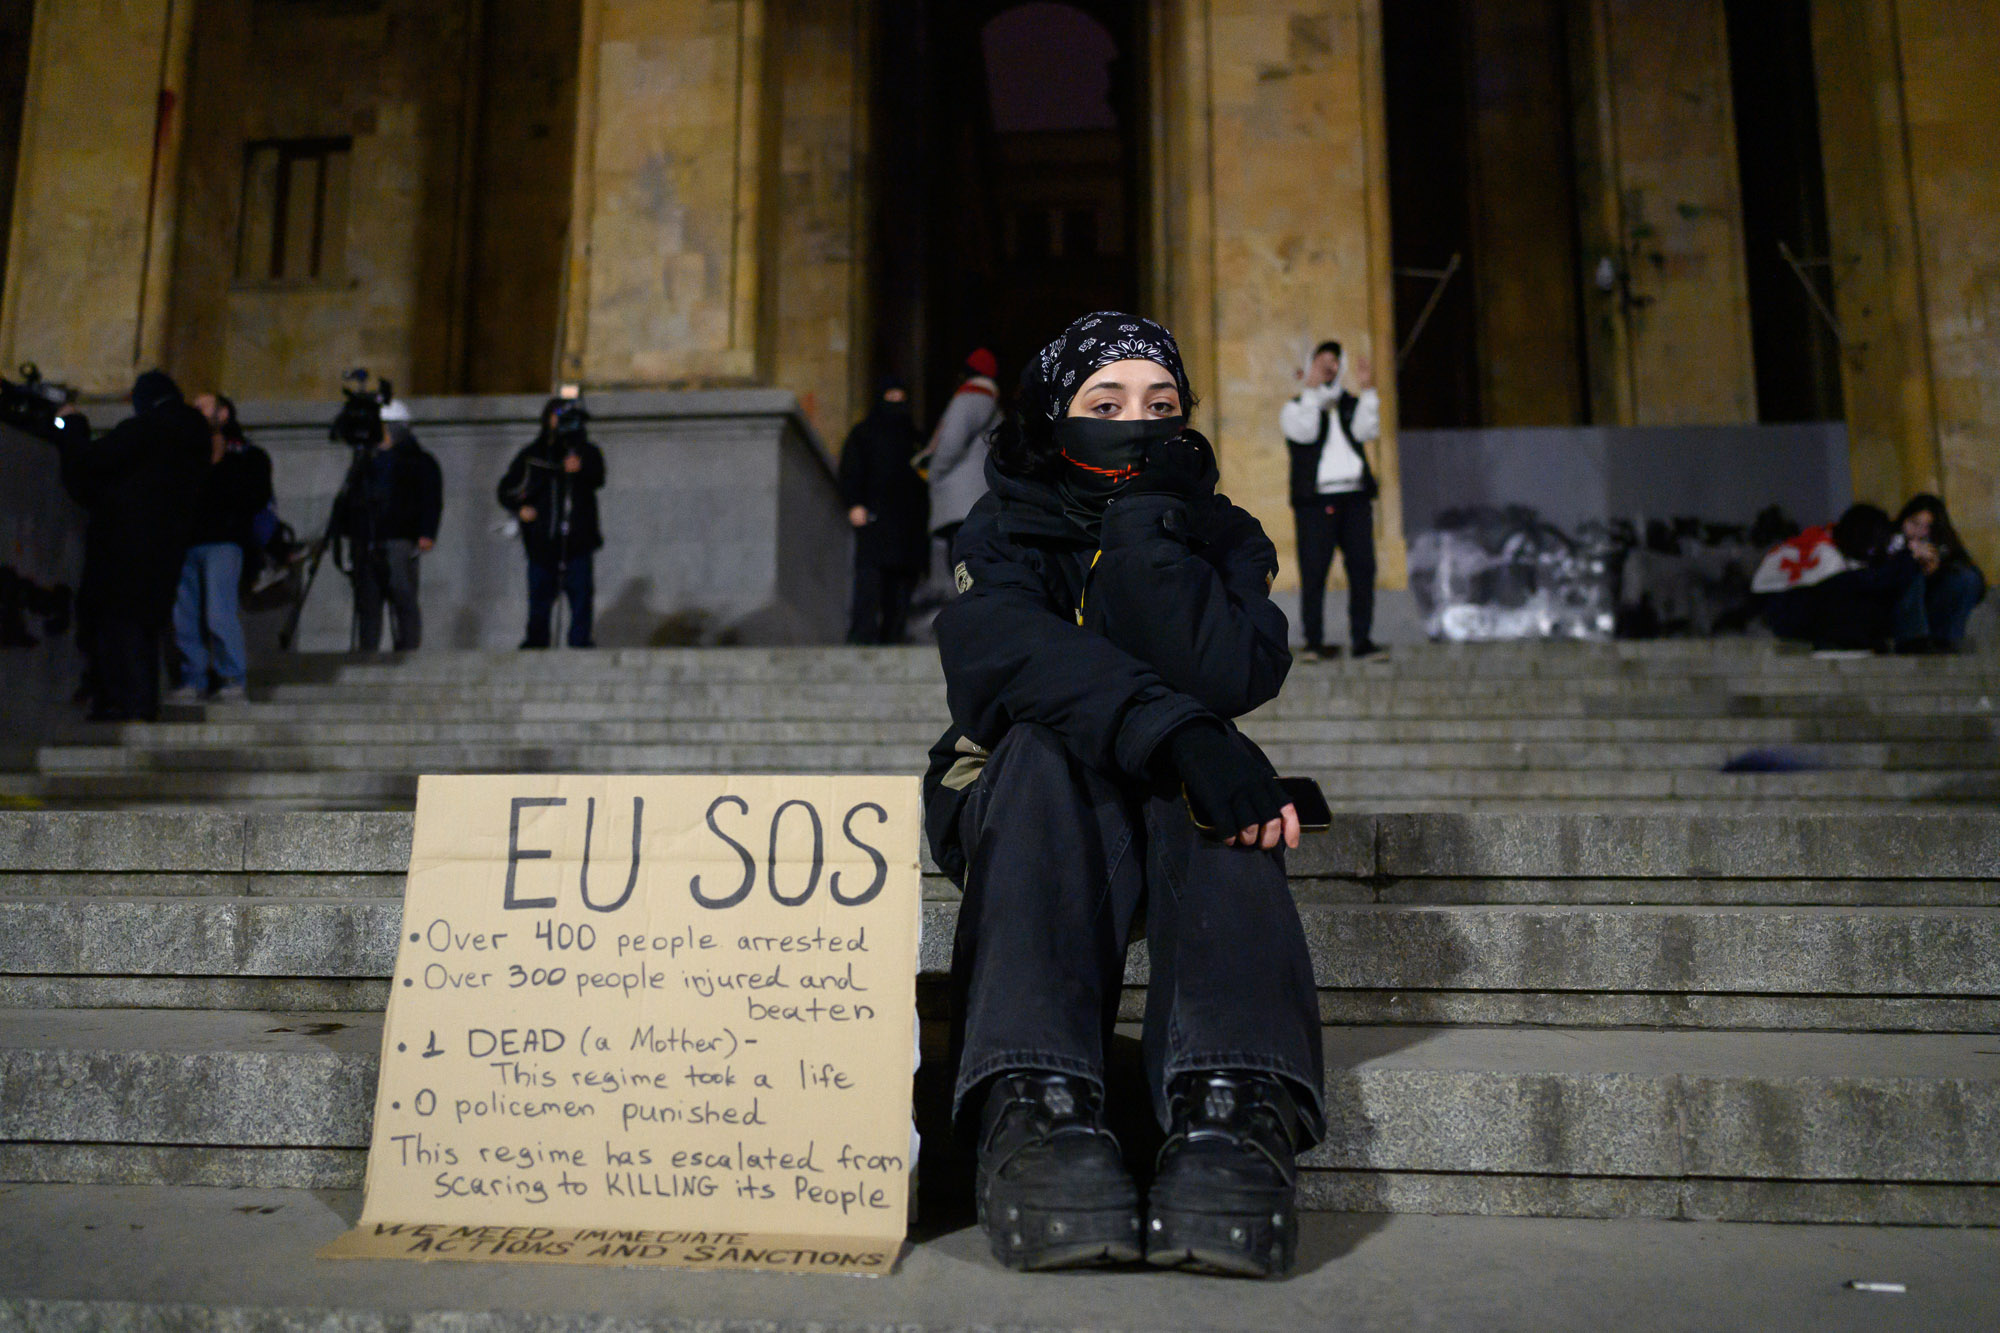 EU SOS
• Over 400 people arrested
• Over 300 people injured and
beaten
• 1 DEAD (a Mother) -
This regime took a life
• 0 policemen punished
This regime has escalated from
scaring to KILLING its People
WE NEED IMMEDIATE
ACTIONS AND SANCTIONS